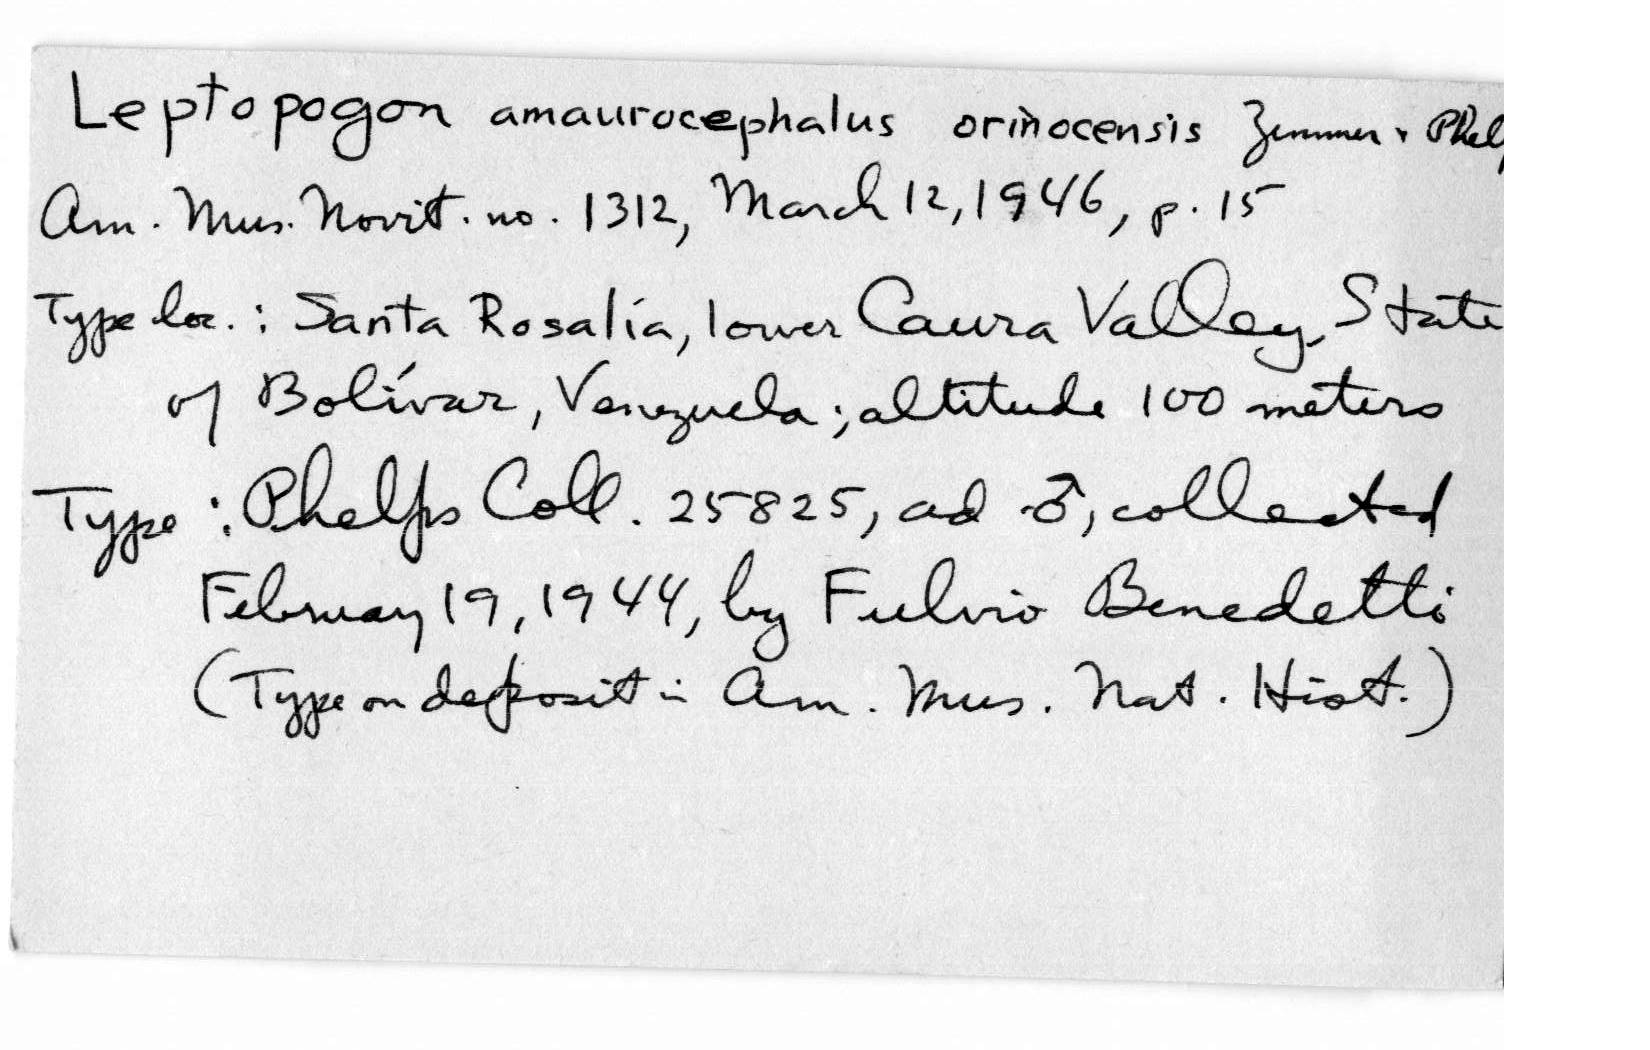 Leptopogon amaurocephalus orinocensis Zimmer & Phel
Am. Mus. Novit. no. 1312, March 12, 1946, p. 15
Type loc.: Santa Rosalía, lower Caura Valley, State
of Bolívar, Venezuela; altitude 100 meters
Type: Phelps Coll. 25825, ad ♂, collected
February 19, 1944, by Fulvio Benedetti
(Type on deposit in Am. Mus. Nat. Hist.)